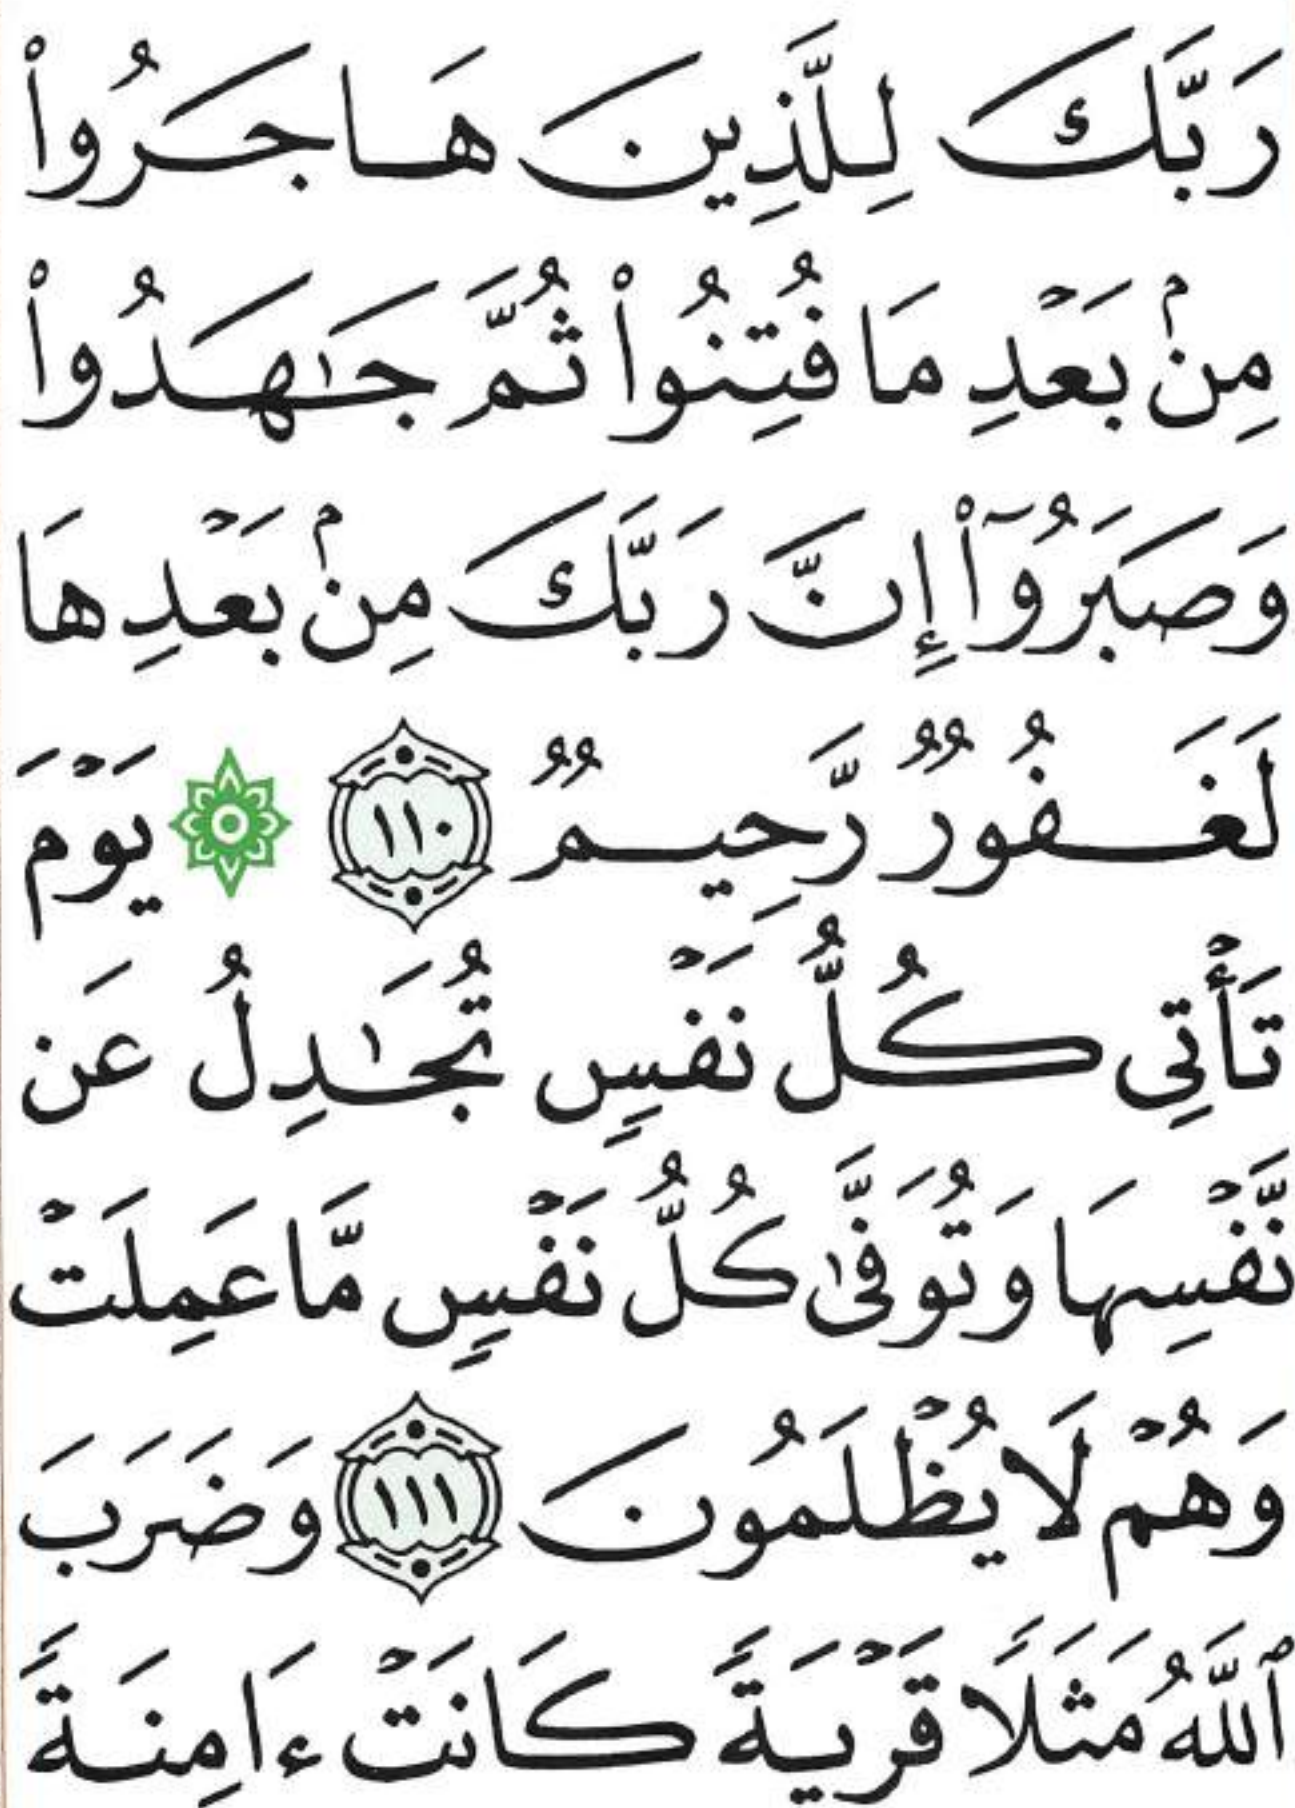 رَبَّكَ لِلَّذِينَ هَاجَرُوا۟
مِنۢ بَعْدِ مَا فُتِنُوا۟ ثُمَّ جَٰهَدُوا۟
وَصَبَرُوٓا۟ إِنَّ رَبَّكَ مِنۢ بَعْدِهَا
لَغَفُورٌ رَّحِيمٌ ١١٠ ۞ يَوْمَ
تَأْتِى كُلُّ نَفْسٍ تُجَٰدِلُ عَن
نَّفْسِهَا وَتُوَفَّىٰ كُلُّ نَفْسٍ مَّا عَمِلَتْ
وَهُمْ لَا يُظْلَمُونَ ١١١ وَضَرَبَ
ٱللَّهُ مَثَلًا قَرْيَةً كَانَتْ ءَامِنَةً